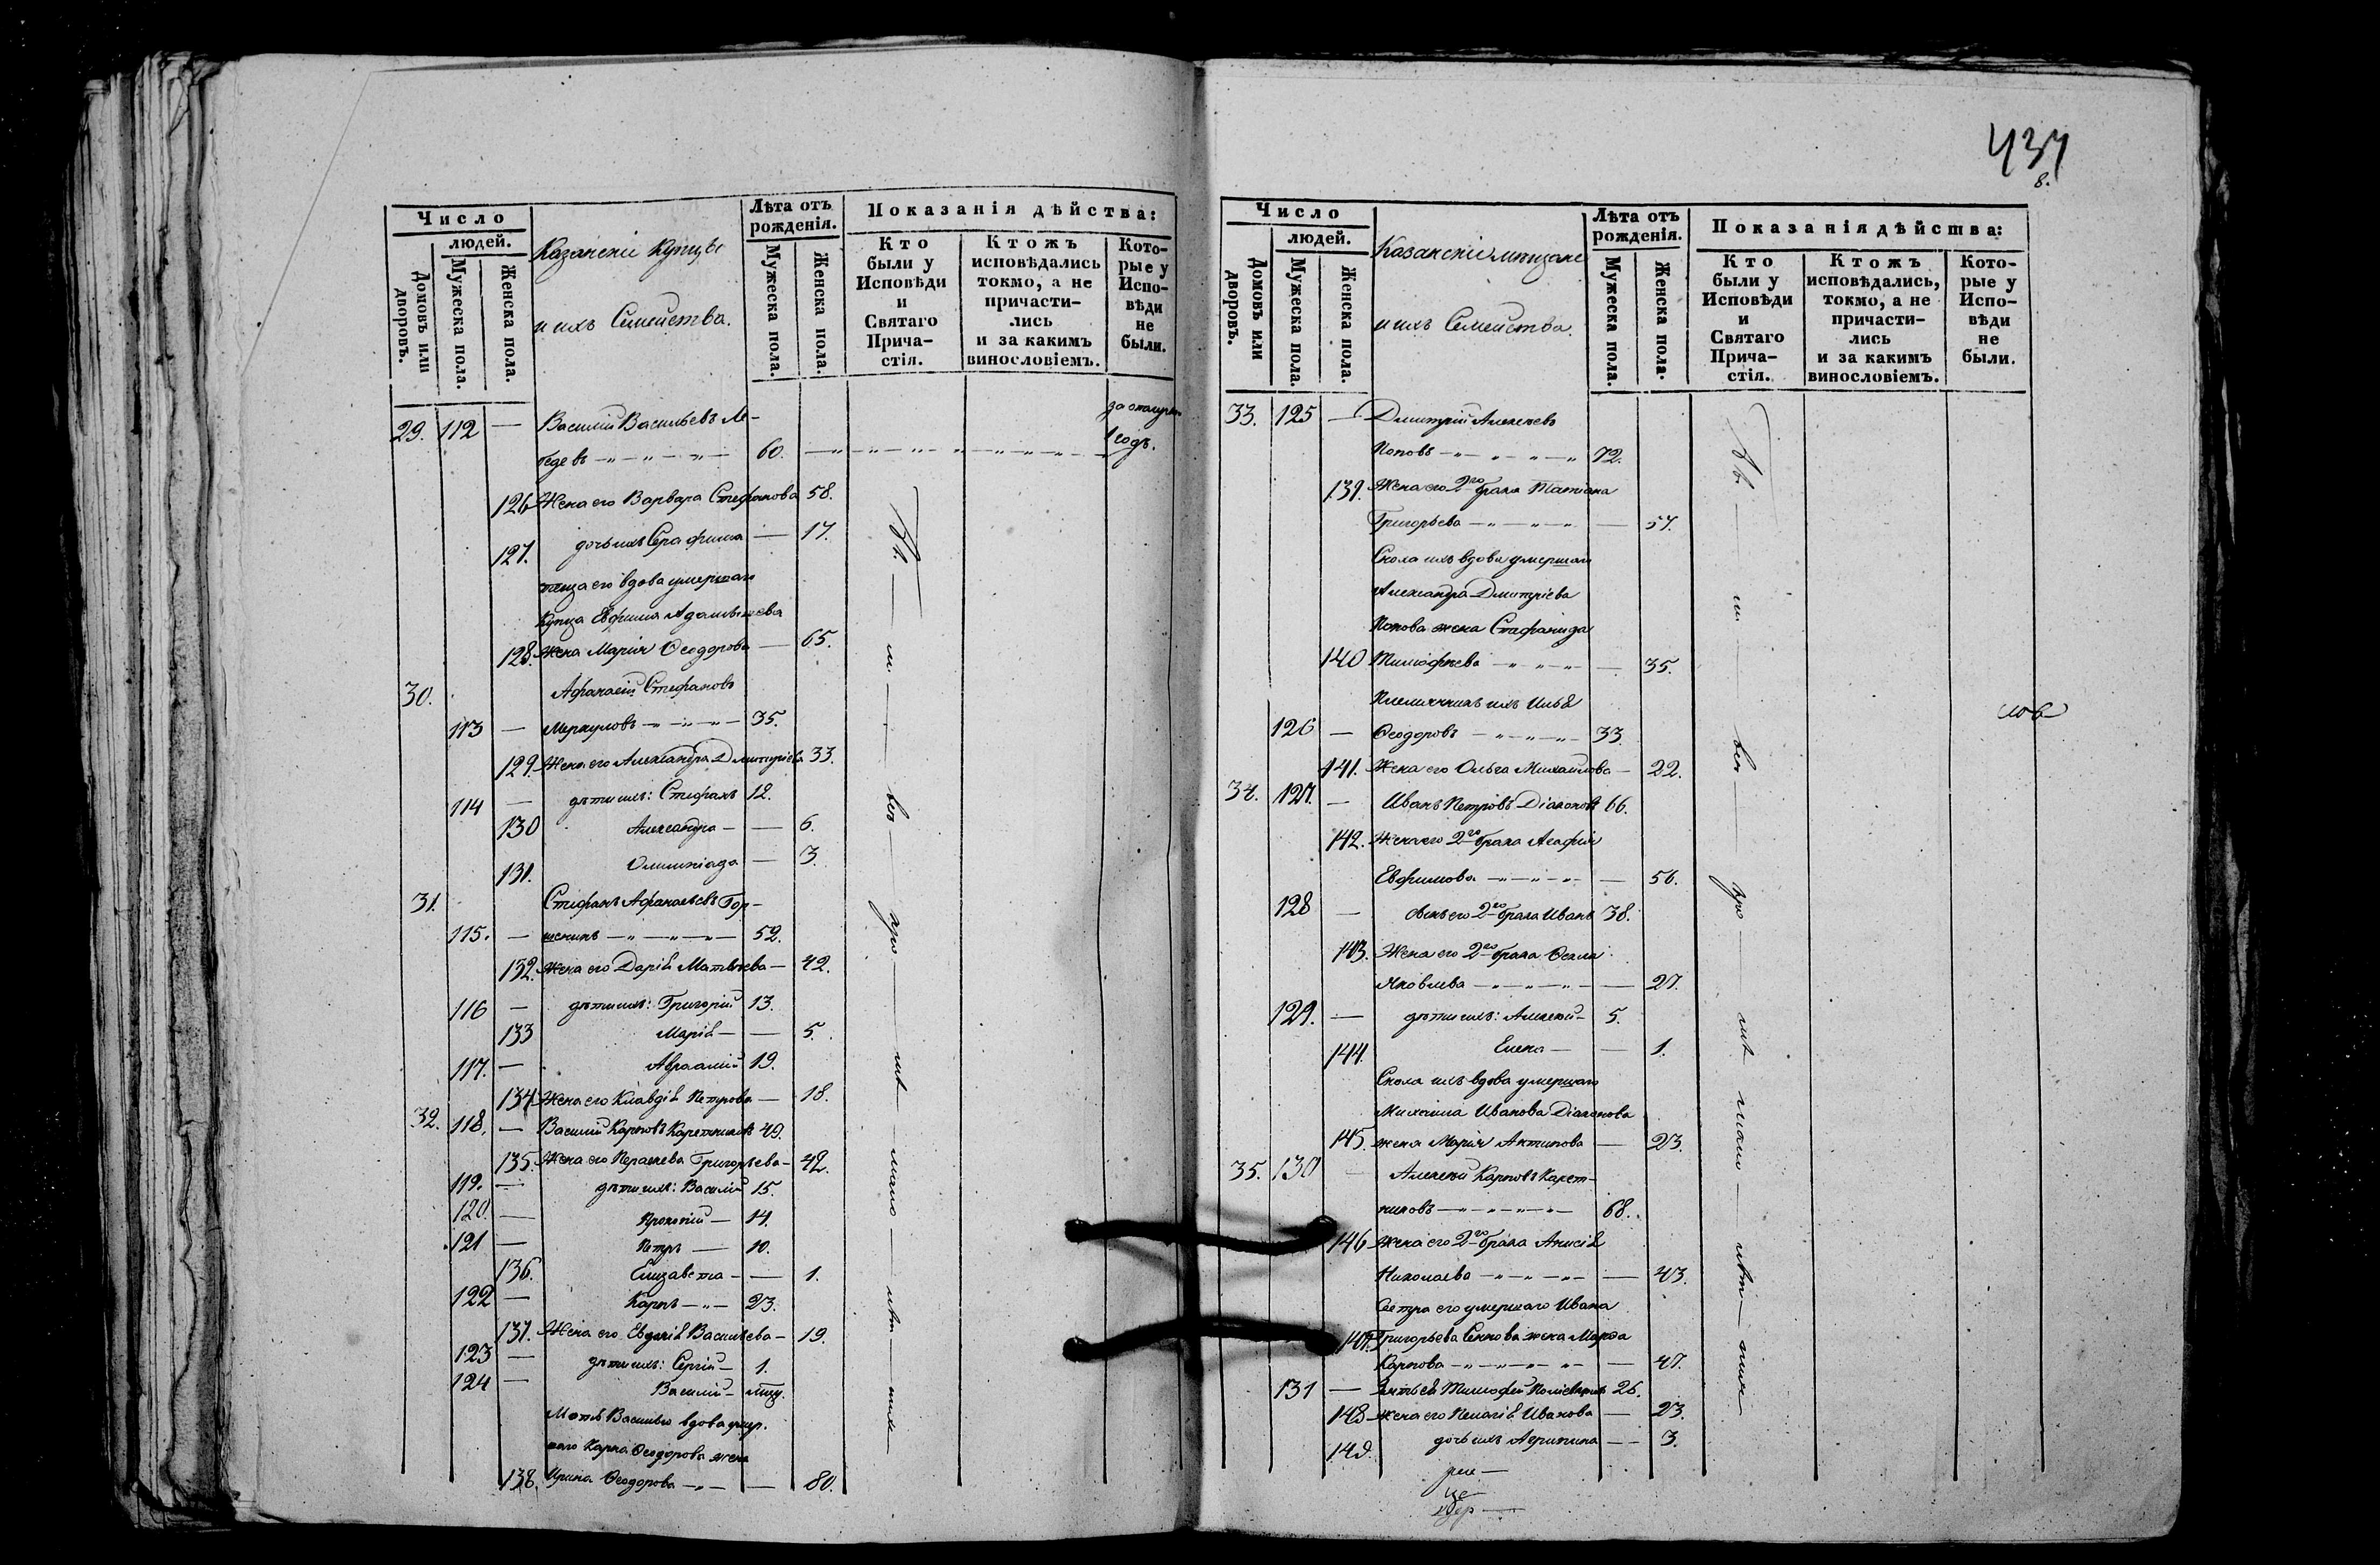 Число
людей.
Домовъ или дворовъ.
Мужеска пола.
Женска пола.
Казанскіе Купцы
и ихъ Семейства.
Лѣта отъ рожденія.
Мужеска пола.
Женска пола.
Показанія дѣйства:
Кто были у Исповѣди и Святаго Прича-стія.
Ктожъ исповѣдались токмо, а не причасти-лись и за какимъ винословіемъ.
Кото-рые у Испо-вѣди не были.
29. 112 — Василій Васильевъ Ле-
бедевъ 60. 1 годъ.
126 Жена его Варвара Стефанова 58.
127. дочь ихъ Серафима — 17.
теща его вдова умершаго
купца Евфима
128. жена Марія Ѳеодорова — 65.
30. Афанасій Стефановъ
113 — Меркуловъ 35.
129. Жена его Александра Дмитріева 33.
114 — дѣти ихъ: Стефанъ 12.
130 Александра — 6.
131. Олимпіада — 3.
31. Стефанъ Афанасьевъ Гор-
115. — шенинъ 52.
132. Жена его Дарія Матвѣева — 42.
116 — дѣти ихъ: Григорій 13.
133 Марія — 5.
117. — Авраамій 19.
134 Жена его Клавдія Петрова — 18.
32. 118. — Василій Карповъ Каретниковъ 49.
135. Жена его Параскева Григорьева — 42.
119. — дѣти ихъ: Василій 15.
120. — Прокопій — 14.
121 — Петръ — 10.
136. Елизавета — 1.
122 — Карпъ 23.
137. Жена его Евдокія Васильева — 19.
123 — дѣти ихъ: Сергій — 1.
124 — Василій —
Мать Василья вдова умер-
шаго Карпа Ѳеодорова жена
138. Ирина Ѳеодорова — 80.
437
8.
Число
людей.
Домовъ или дворовъ.
Мужеска пола.
Женска пола.
Казанскіе мѣщане
и ихъ Семейства.
Лѣта отъ рожденія.
Мужеска пола.
Женска пола.
Показанія дѣйства:
Кто были у Исповѣди и Святаго Прича-стія.
Ктожъ исповѣдались, токмо, а не причасти-лись и за какимъ винословіемъ.
Кото-рые у Испо-вѣди не были.
33. 125 — Дмитрій Алексѣевъ
Поповъ 72.
139. Жена его 2го брака Татіана
Григорьева — 57.
Сноха ихъ вдова умершаго
Александра Дмитріева
Попова жена Стефанида
140 Тимофеева — 35.
Племянникъ ихъ Илья
126 — Ѳеодоровъ 33.
141. Жена его Ольга Михайлова — 22.
34. 127. — Иванъ Петровъ Діаконовъ 66.
142. Жена его 2го брака Агафія
Евфимова — 56.
128 — Сынъ его 2го брака Иванъ 38.
143. Жена его 2го брака Ѳекла
Яковлева — 27.
129. — дѣти ихъ: Алексѣй — 5.
144. Елена — 1.
Сноха ихъ вдова умершаго
Михаила Иванова Діаконова
145. жена Марія Антипова — 23.
35. 130 — Алексѣй Карповъ Карет-
никовъ 68.
146 Жена его 2го брака Анисія
Николаева — 43.
Сестра его умершаго Ивана
147. Григорьева жена Марфа
Карпова — 47.
131 — Зять ея Тимофей 26.
148 Жена его Пелагія Иванова — 23.
149. дочь ихъ Агрипина — 3.